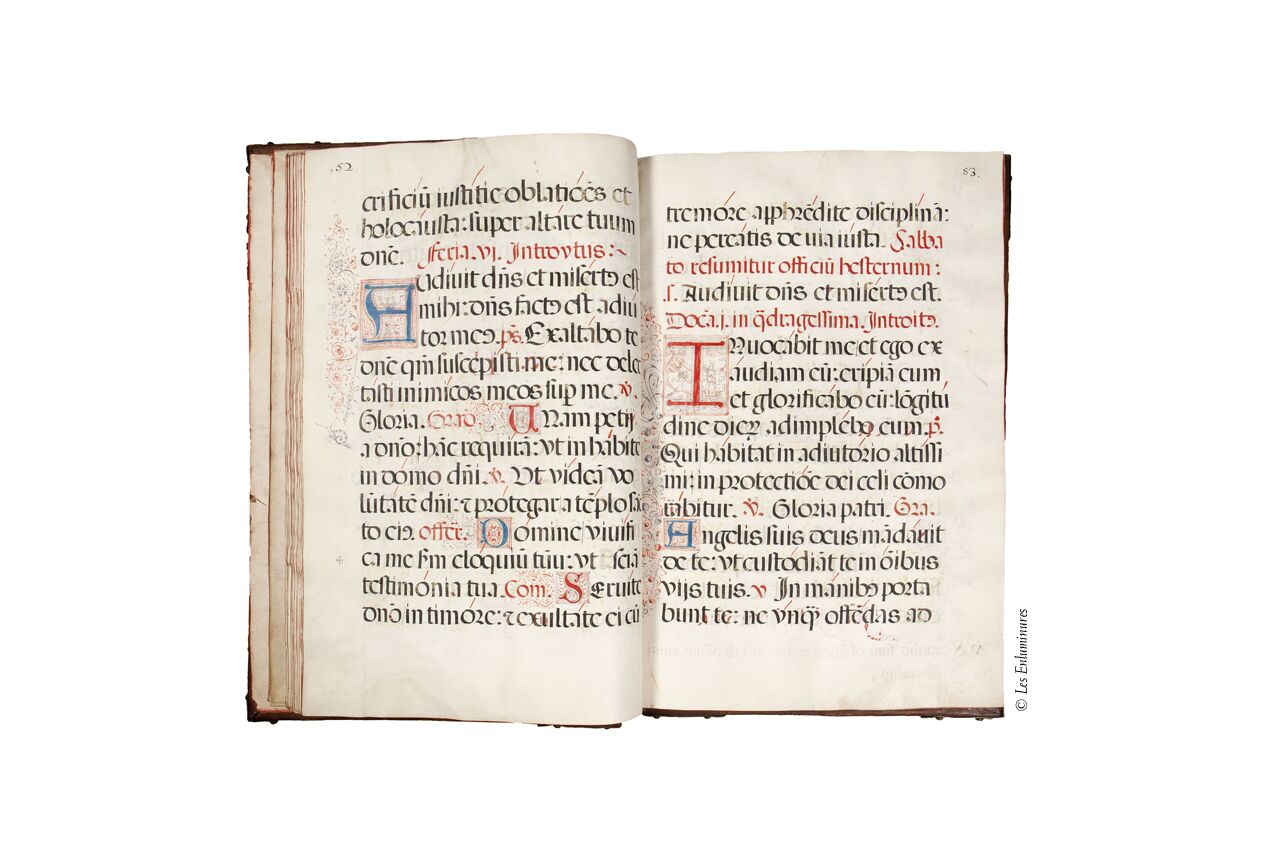 .52.
crificiū iustitie oblatiões et
holocausta: super altare tuum
dnē. Feria .vi. Introytus:~
Audiuit dñs et misertꝰ est
mihi: dñs factꝰ est adiu
tor meꝰ. ps̄. Exaltabo te
dnē qm̄ suscepisti me: nec delec
tasti inimicos meos sup me. v̄.
Gloria. Grad. Unam petij
a dnō: hāc requirā: vt inhabitē
in domo dñi. v̄. Vt videā vo
lūtatē dñi: ⁊ protegar a tēplo sā
to eiꝰ. offer̄. Domine viuifi
ca me s̄m eloquiū tuū: vt sciā
testimonia tua. Com. Seruite
dnō in timore: ⁊ exultate ei cū
53.
tremore apprehēdite disciplinā:
ne pereatis de uia iusta. Sabba
to resumitur officiū hesternum:
s. Audiuit dñs et misertꝰ est.
Docā.j. in q̄dragessima. Introitꝰ.
INuocabit me, et ego ex
audiam eū: eripiā eum
et glorificabo eū: lōgitu
dine dieꝝ adimplebo eum. p̄.
Qui habitat in adiutorio altissi
mi: in protectiōe dei celi cōmo
rabitur. v̄. Gloria patri. Gra.
Angelis suis deus mādauit
de te: vt custodiāt te in ōibus
vijs tuis. v In manibꝰ porta
bunt te: ne vnq̄ꝫ offēdas ad
© Les Enluminures